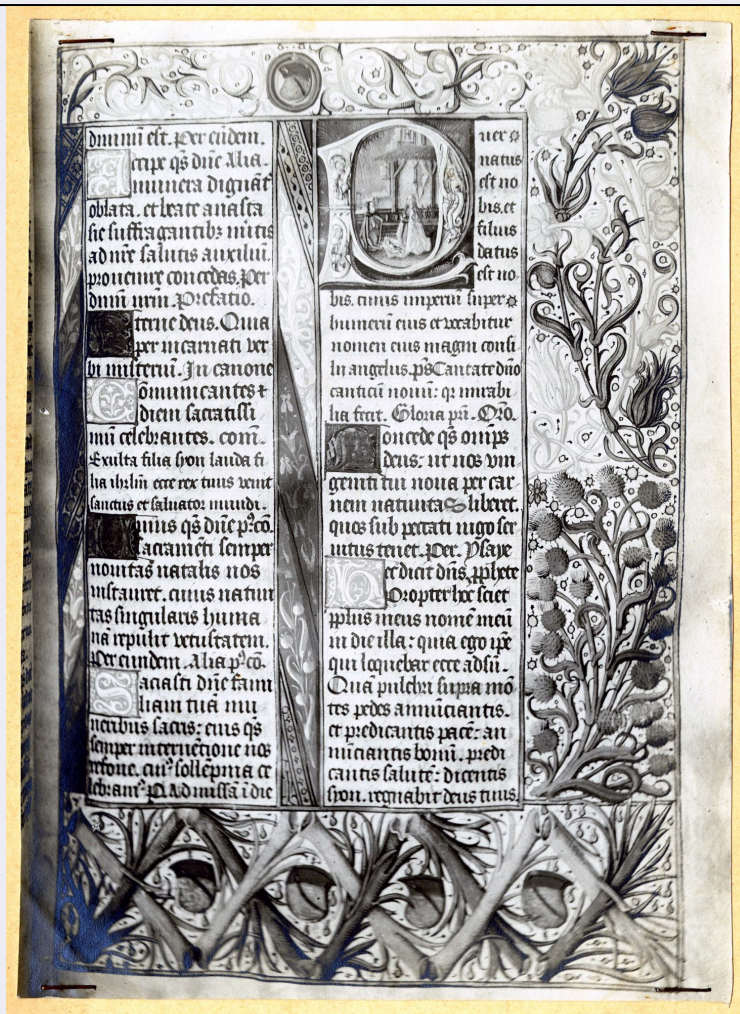 diuinū est. Per eūdem.
Accipe q̄s dn̄e Alia.
munera dignāt
oblata. et beate anasta
sie suffragantibȝ mr̄itis
ad nr̄e salutis auxiliū.
prouenire concedas. Per
dnm̄ nrm̄. Prefatio.
Eterne deus. Quia
per incarnati ver
bi misteriū. In canone
Cōmunicantes ⁊
diem sacratissi
mū celebrantes. com̄.
Exulta filia syon lauda fi
lia ihrlm̄ ecce rex tuus venit
sanctus et saluator mundi.
huius q̄s dn̄e p̱ꝰ co.
sacramēti semper
nouitas natalis nos
instauret. cuius natiui
tas singularis huma
nā repulit vetustatem.
Per eundem. Alia p̱ꝰ cō.
Saciasti dn̄e fami
liam tuā mu
neribus sacris: eius q̄s
semper interuētione nos
refoue. cuiꝰ sollēpnia ce
lebramꝰ. P. Ad missā ī die
Puer
natus
est no
bis. et
filius
datus
est no
bis. cuius imperiū super
humerū eius et vocabitur
nomen eius magni consi
lii angelus. p̄s Cantate dn̄o
canticū nouū: qr mirabi
lia fecit. Gloria pr̄i. Oro.
Concede q̄s omp̄s
deus: ut nos vni
geniti tui noua per car
nem natiuitas liberet.
quos sub peccati iugo ser
uitus tenet. Per. Ysaye
Hec dicit dn̄s. p̱phete
Propter hoc sciet
pp̄lus meus nomē meū
in die illa: quia ego ip̄e
qui loquebar ecce adsū.
Quā pulchri supra mō
tes pedes annūciantis.
et predicantis pacē: an
nūciantis bonū. predi
cantis salutē: dicentis
syon. regnabit deus tuus.